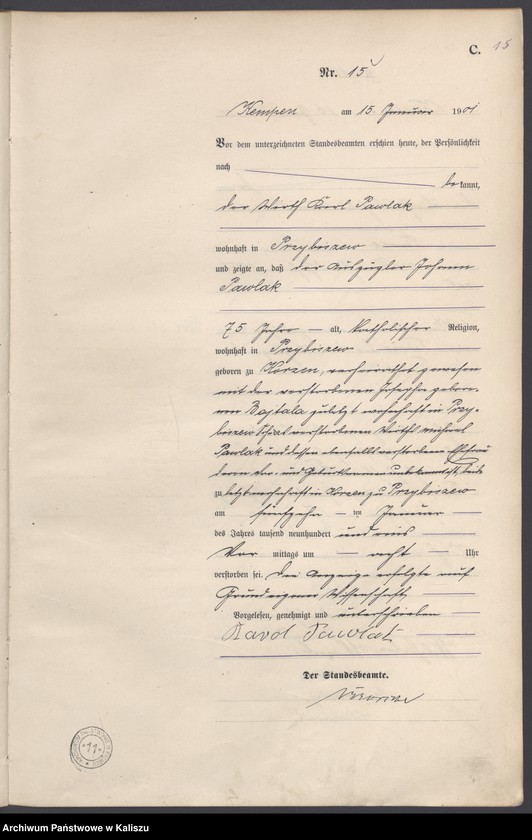 C. 15
Nr. 15
Kempen am 15. Januar 1901
Vor dem unterzeichneten Standesbeamten erschien heute, der Persönlichkeit
nach
bekannt,
der Wirth Karl Pawlak
wohnhaft in Przybiszew
und zeigte an, daß der Auszügler Johann
Pawlak
75 Jahre alt, katholischer Religion,
wohnhaft in Przybiszew
geboren zu Korzen, verheirathet gewesen
mit der verstorbenen Josepha gebore-
nen Bajtala zuletzt wohnhaft in Przy-
biszew Sohn des verstorbenen Wirths Michael
Pawlak und dessen ebenfalls verstorbenen Ehefrau
deren Vor- und Geburtsname unbekannt ist, beide
zuletzt wohnhaft in Korzen zu Przybiszew
am fünfzehn ten Januar
des Jahres tausend neunhundert und eins
Vor mittags um acht Uhr
verstorben sei. Die Anzeige erfolgte auf
Grund eigener Wissenschaft
Vorgelesen, genehmigt und unterschrieben
Karol Pawlak
Der Standesbeamte.
11
Archiwum Państwowe w Kaliszu